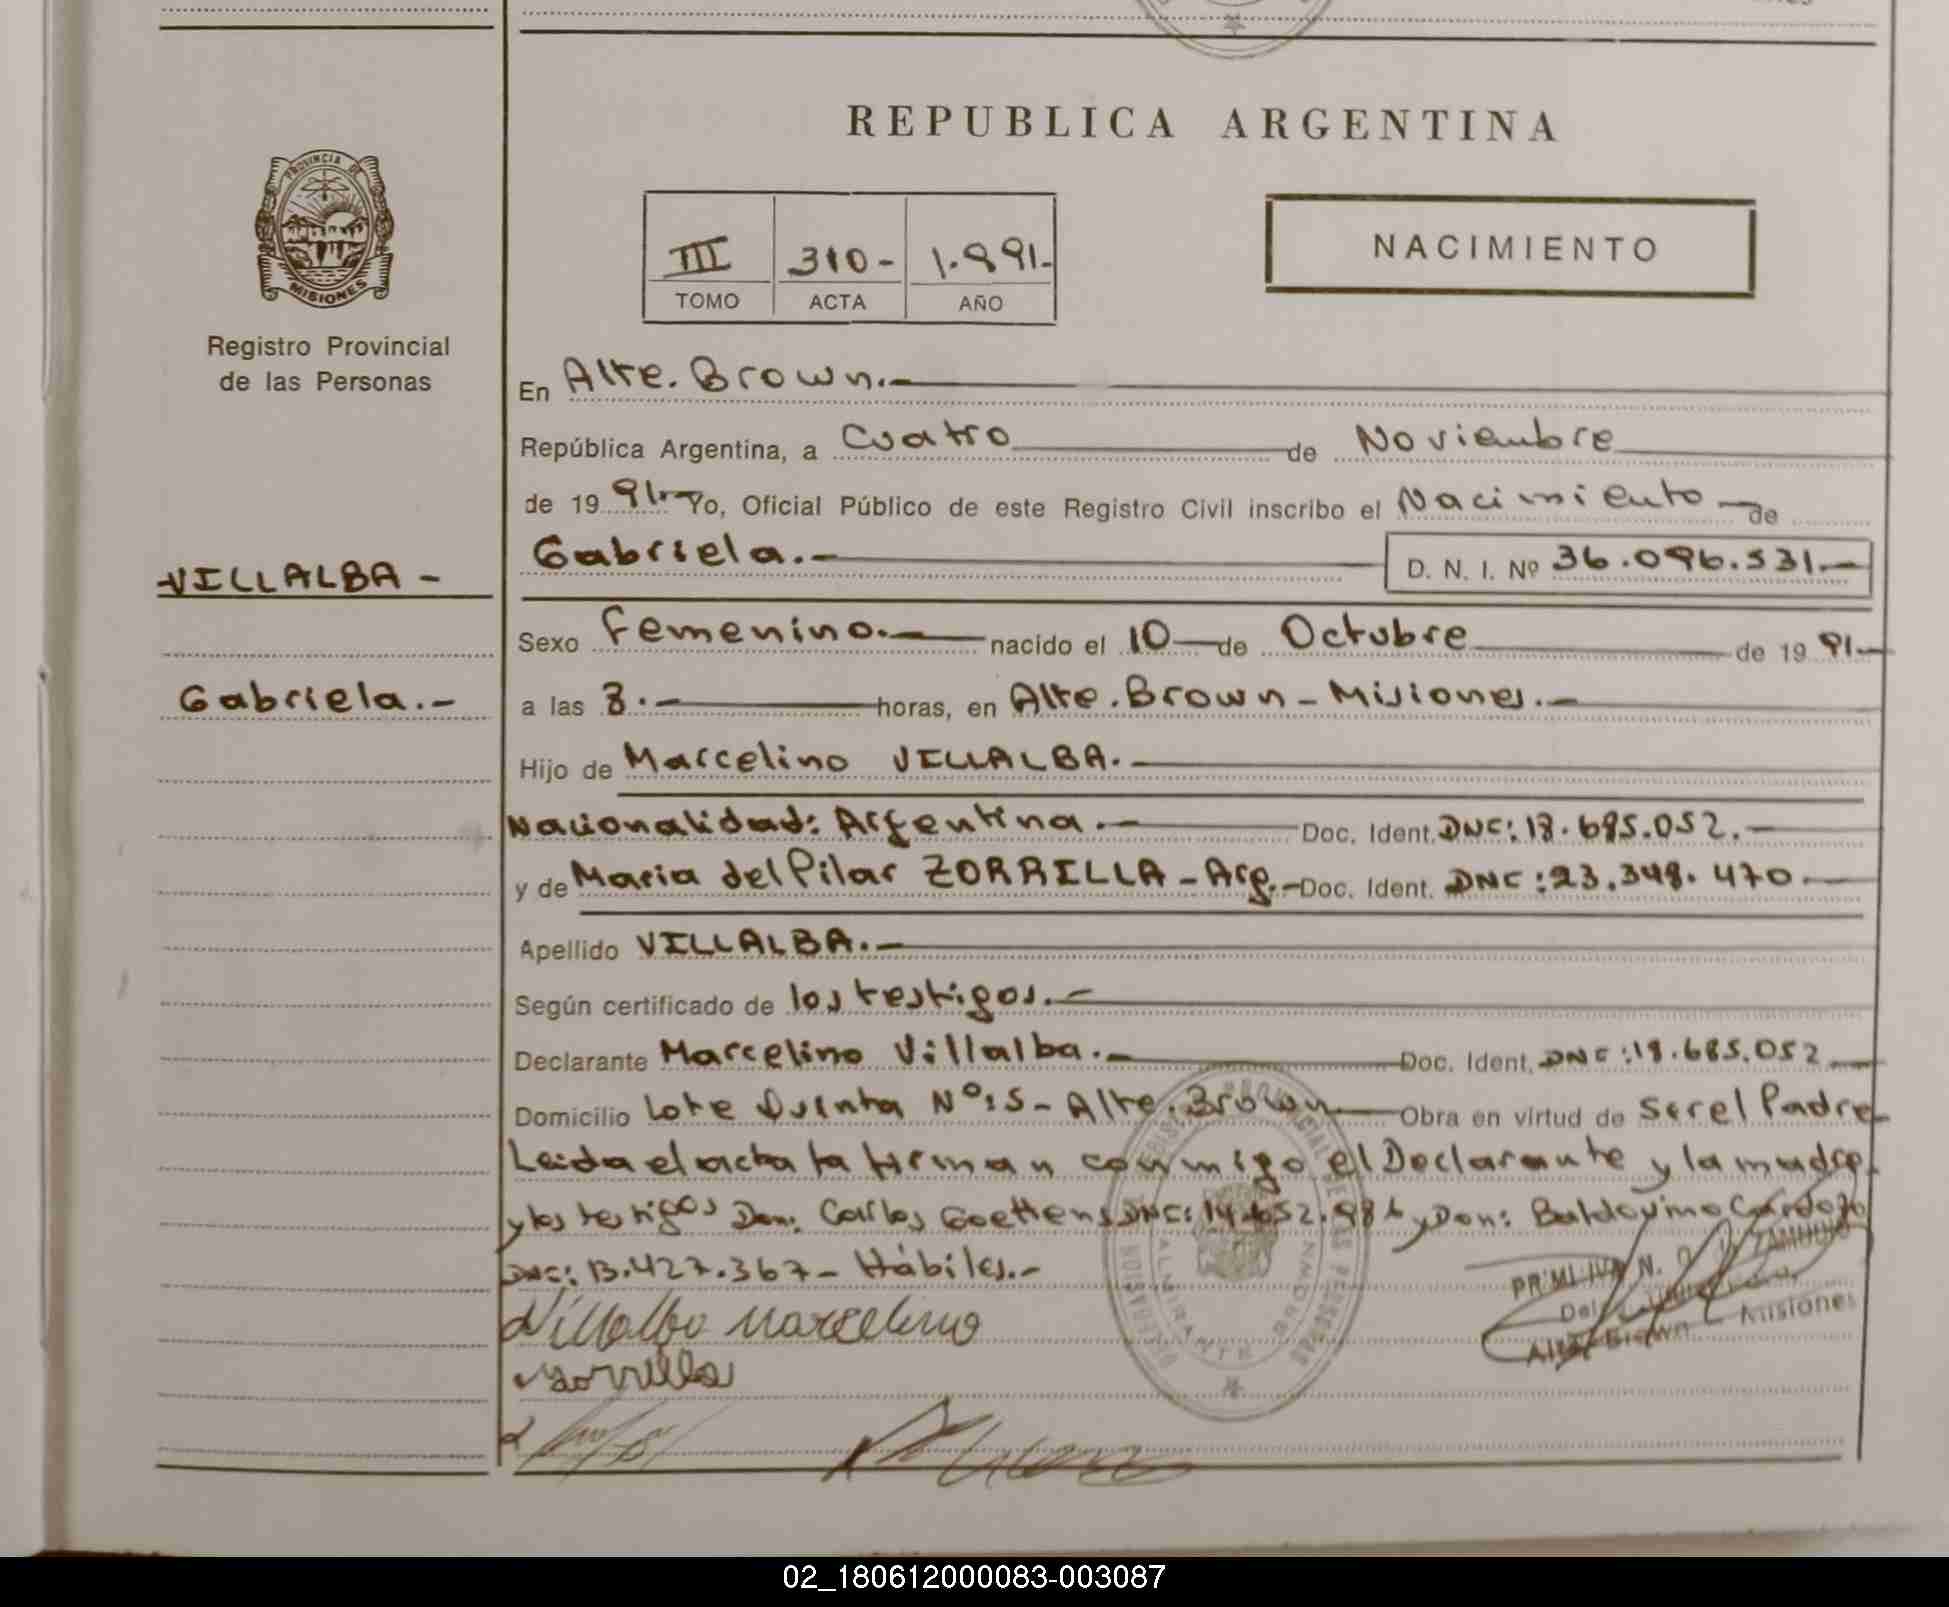 REPUBLICA ARGENTINA
PROVINCIA DE
MISIONES
Registro Provincial
de las Personas
III 310- 1.991.
TOMO ACTA AÑO
NACIMIENTO
En Alte. Brown.-
República Argentina, a Cuatro de Noviembre
de 19 91.- Yo, Oficial Público de este Registro Civil inscribo el Nacimiento - de
Gabriela.- D. N. I. Nº 36.096.531.-
VILLALBA -
Sexo Femenino.- nacido el 10 - de Octubre de 19 91-
Gabriela.-
a las 8.- horas, en Alte. Brown - Misiones.-
Hijo de Marcelino VILLALBA.-
Nacionalidad: Argentina.- Doc. Ident. DNC: 18.685.052.-
y de Maria del Pilar ZORRILLA - Arg.- Doc. Ident. DNC: 23.348.470.-
Apellido VILLALBA.-
Según certificado de los testigos.-
Declarante Marcelino Villalba.- Doc. Ident. DNC: 18.685.052
Domicilio Lote Quinta Nº: 5 - Alte. Brown - Obra en virtud de Ser el Padre
Leida el acta la firman conmigo el Declarante y la madre
y los testigos Don: Carlos Goettens DNC: y Don: Baldovino Cardozo
DNC: 13.427.367 - Hábiles.-
Villalba Marcelino
Zorrilla
PRIMITIVA N.
Alte. Brown - Misiones
02_180612000083-003087